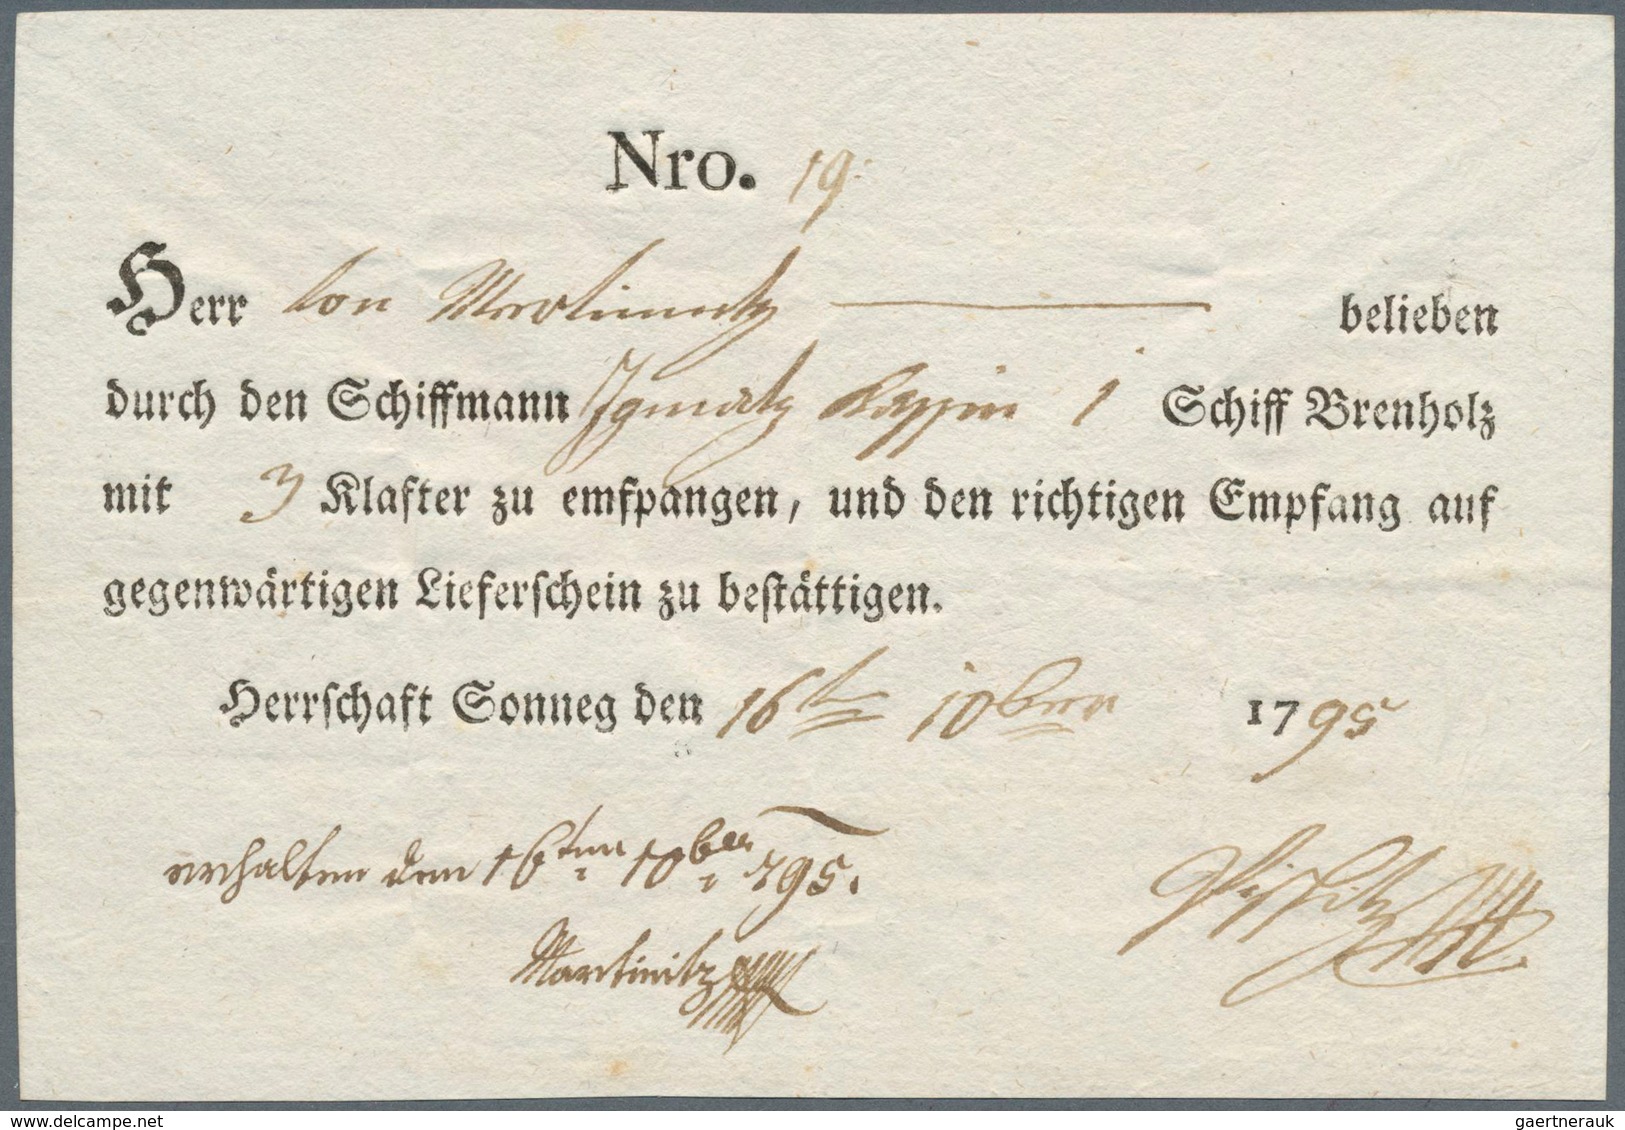 Nro. 19.
Herr von Martinitz belieben
durch den Schiffmann Ignatz 1 Schiff Brenholz
mit 3 Klafter zu emfpangen, und den richtigen Empfang auf
gegenwärtigen Lieferschein zu bestättigen.
Herrschaft Sonneg den 16t 10ber 1795
erhalten den 16ten 10ber 795.
Martinitz
www.delcampe.net
gaertnerauk